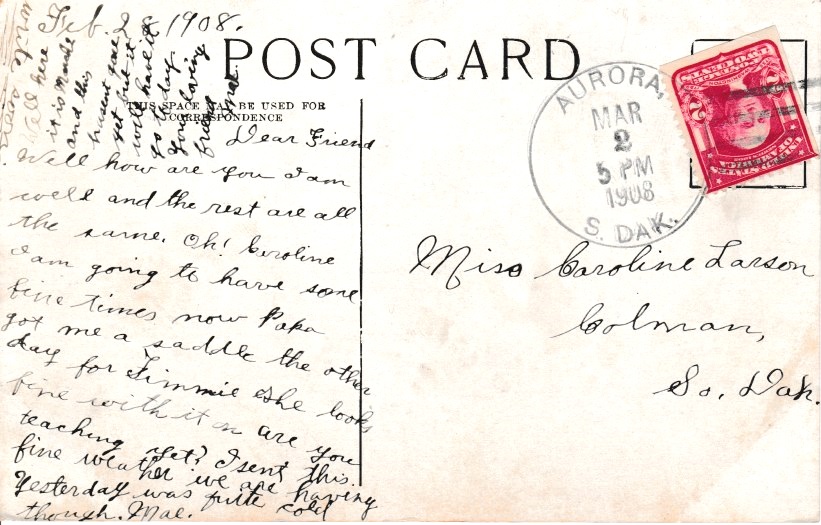 Feb. 1908.
POST CARD
THIS SPACE MAY BE USED FOR
CORRESPONDENCE
Dear Friend
Well how are you I am
well and the rest are all
the same. Oh! Caroline
I am going to have some
fine times now Papa
got me a saddle the other
day for Jimmie She looks
fine with it on are you
teaching yet? I sent this.
fine weather we are having
Yesterday was quite cold
though. Mae.
write soon
Well here
it is
and this
yet but it
will have to
go to day.
Your loving
friend
Mae.
AURORA,
MAR
2
5 PM
1908
S. DAK.
2
2
Miss Caroline Larson
Colman,
So. Dak.